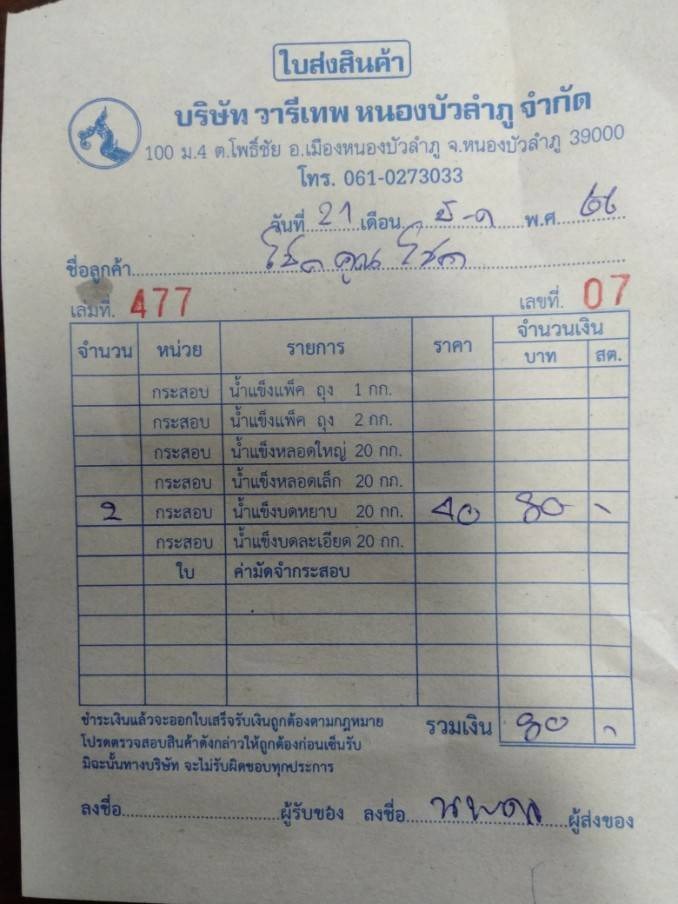 ใบส่งสินค้า
บริษัท วารีเทพ หนองบัวลำภู จำกัด
100 ม.4 ต.โพธิ์ชัย อ.เมืองหนองบัวลำภู จ.หนองบัวลำภู 39000
โทร. 061-0273033
วันที่ 21 เดือน ธ-ค พ.ศ. 66
ชื่อลูกค้า โชค คูน โชค
เล่มที่. 477 เลขที่. 07
จำนวน หน่วย รายการ ราคา จำนวนเงิน
บาท สต.
กระสอบ น้ำแข็งแพ็ค ถุง 1 กก.
กระสอบ น้ำแข็งแพ็ค ถุง 2 กก.
กระสอบ น้ำแข็งหลอดใหญ่ 20 กก.
กระสอบ น้ำแข็งหลอดเล็ก 20 กก.
2 กระสอบ น้ำแข็งบดหยาบ 20 กก. 40 80 -
กระสอบ น้ำแข็งบดละเอียด 20 กก.
ใบ ค่ามัดจำกระสอบ
ชำระเงินแล้วจะออกใบเสร็จรับเงินถูกต้องตามกฎหมาย รวมเงิน 80 -
โปรดตรวจสอบสินค้าดังกล่าวให้ถูกต้องก่อนเซ็นรับ
มิฉะนั้นทางบริษัท จะไม่รับผิดชอบทุกประการ
ลงชื่อ ผู้รับของ ลงชื่อ นพดล ผู้ส่งของ